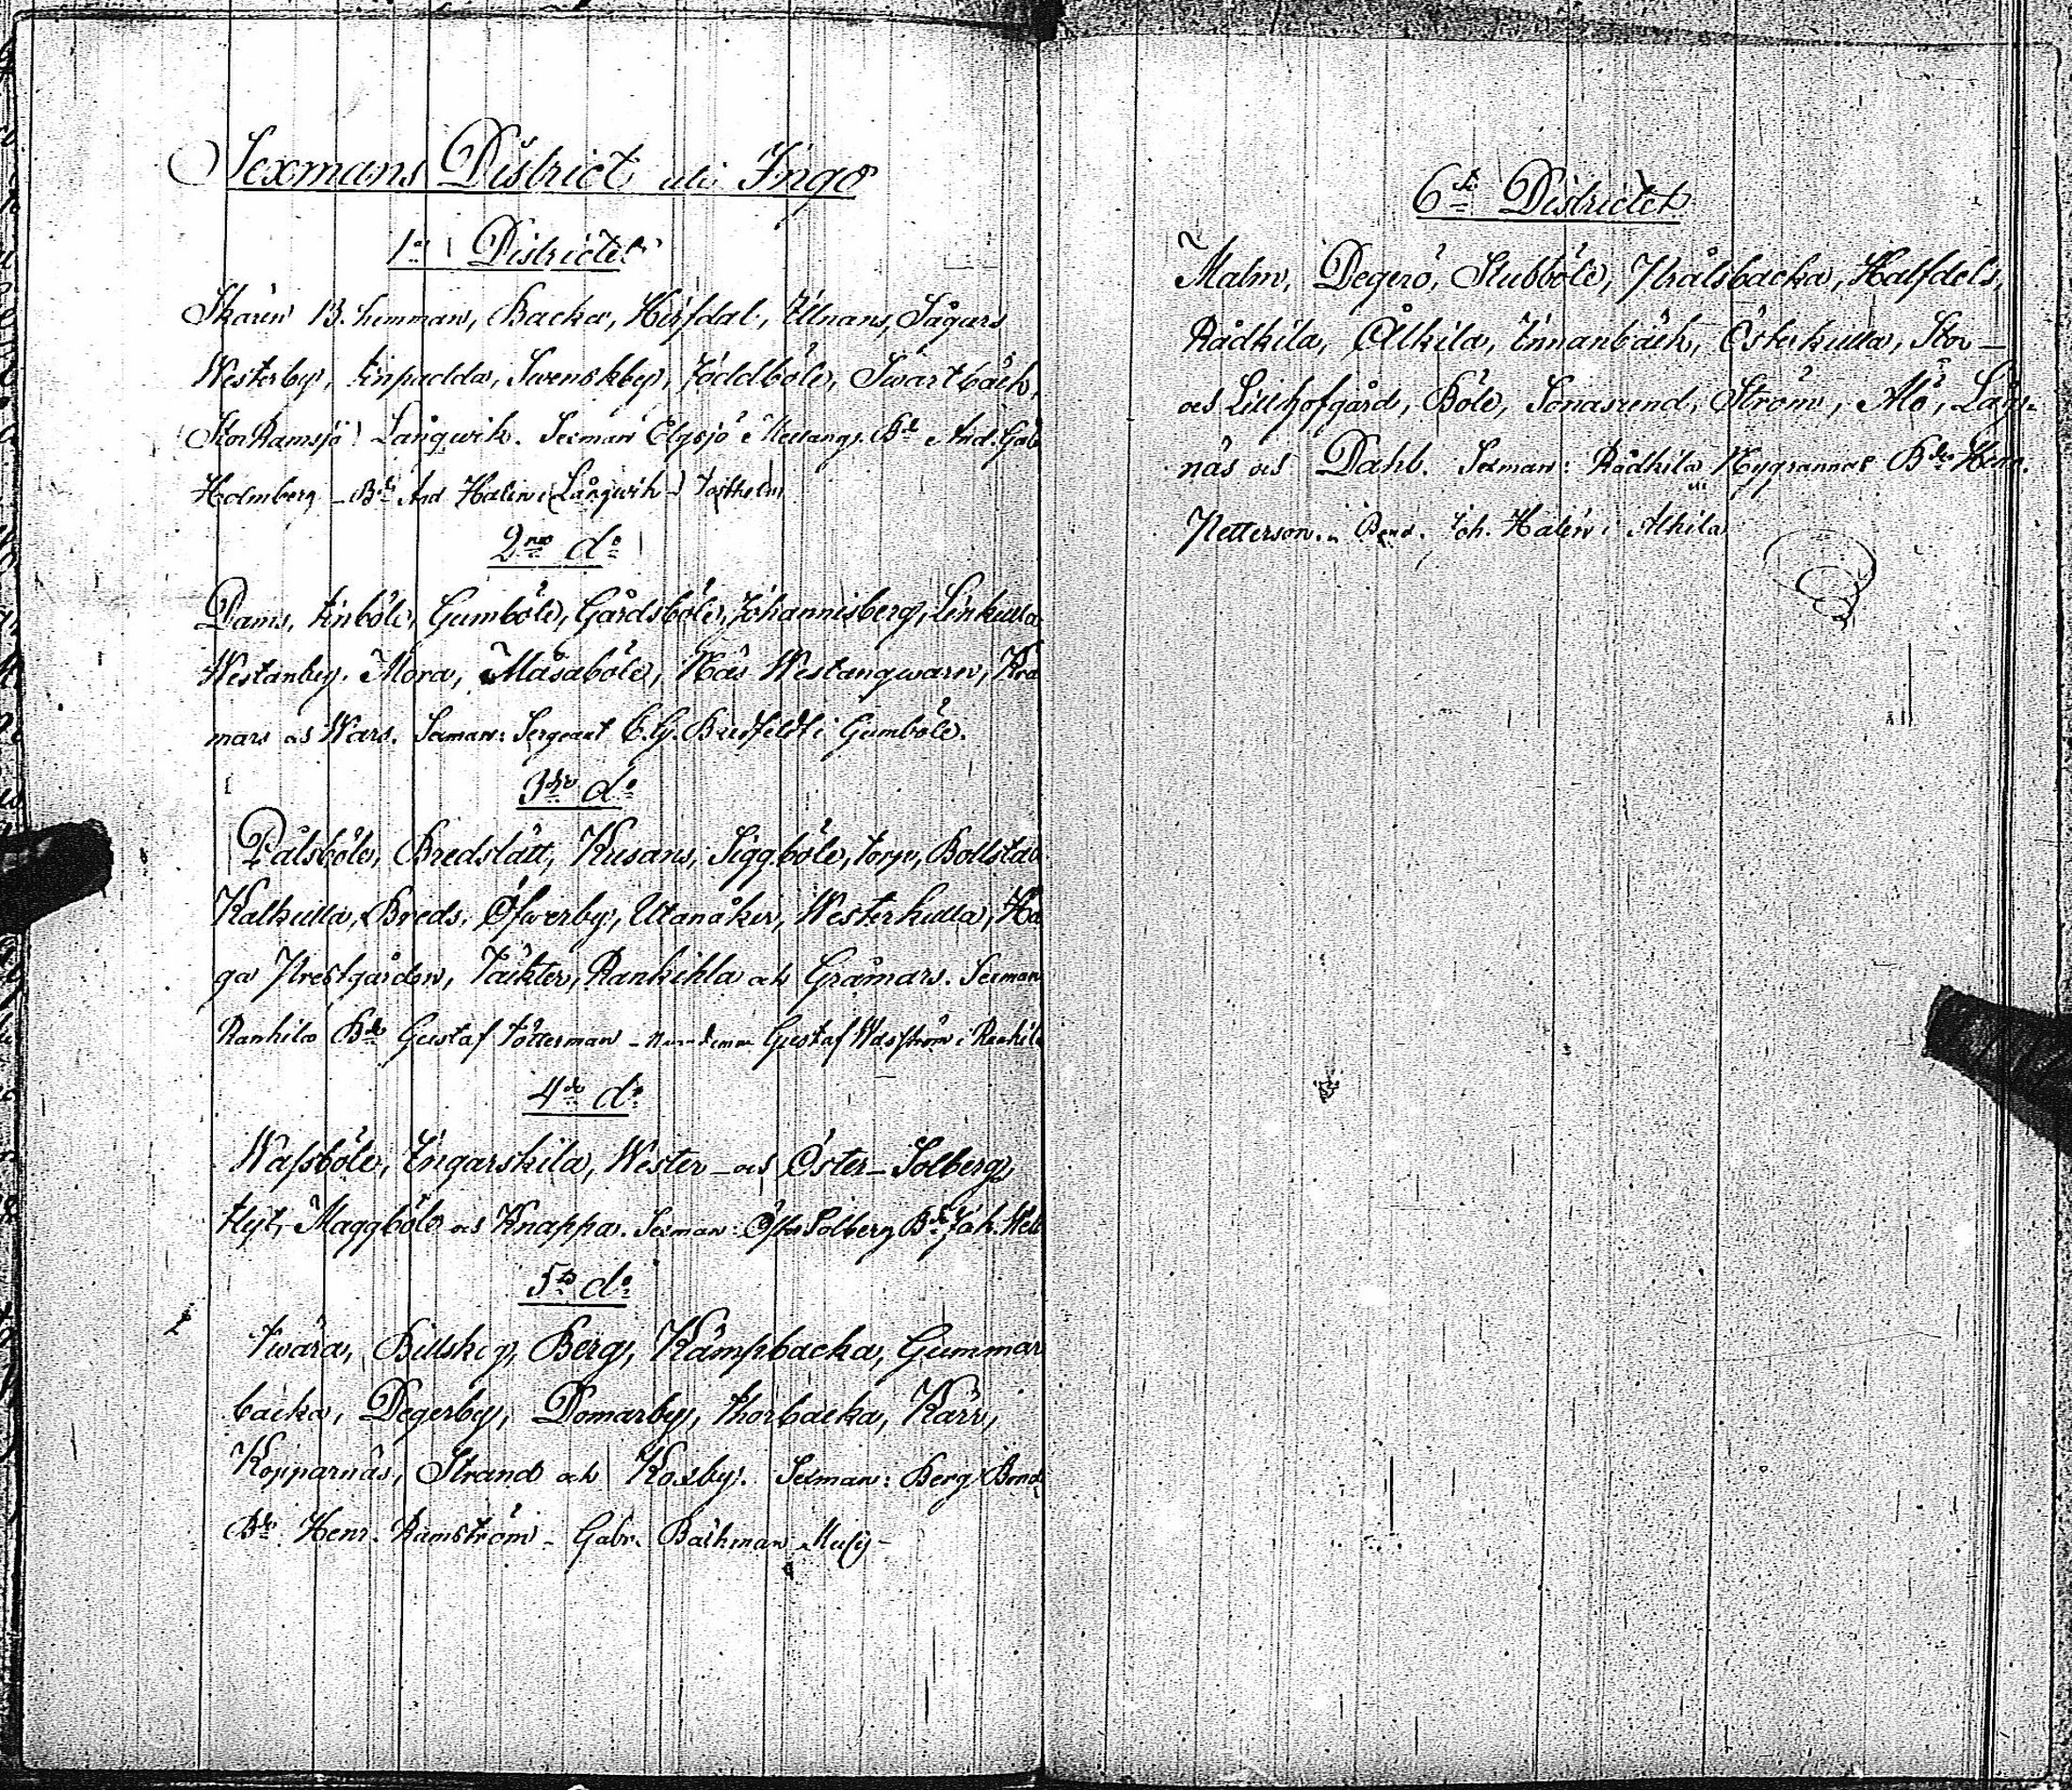 Sexmans District uti Ingo
1a Districtet
Skären 13. hemman, Backa, Hirsdal, Illnans, Sågars
Westerby, Finpadda, Svenskby, Joddböle, Svartbäck,
(Stor Ramsjö) Långwik. Sexman Elgsjö Mellangs. Bde And. Gab
Holmberg – Bde And Halin i Långwik –
2ra do
Dams, Finböle, Gumböle, Gårdsböle, Johannisberg, Linkulla
Westanby, Mora, Måsaböle, Näs Westanqwarn, Kro
mars och Wars. Sexman: Sergeant C. G. Bredfeldt i Gumböle.
3die do
Pålsböle, Bredslätt, Kusans, Siggböle, Torp, Bollstad
Kalkulla, Breds, Öfwerby, Utanåker, Westerkulla, Ha
ga Prestgården, Täkter, Rankihla och Gråmars. Sexman
Rankila Bde Gustaf Tötterman – Gustaf Wasström i Rankila
4de do
Wassböle, Ingarskila, Wester – och Öster – Solberg,
Flyt, Maggböle och Knappa. Sexman: Öster Solberg Bde Joh.
5te do
Twära, Billskog, Berg, Kämpbacka, Gummar
backa, Degerby, Domarby, Thorbacka, Kärr,
Kopparnäs, Strand och Koxby. Sexman: Berg Bond
Bde Henr. Ramström – Gabr. Backman
6te Districtet
Malm, Degerö, Stubböle, Prålsbacka, Halfdels,
Rådkila, Ålkila, Innanbäck, Österkulla, Stor –
och Lillhofgård, Böle, Jonasund, Ström, Alö, Lång-
näs och Dahl. Sexman: Rådkila Nygrannas Bde Henr.
Petterson. Bond. Joh. Halin i Ålkila